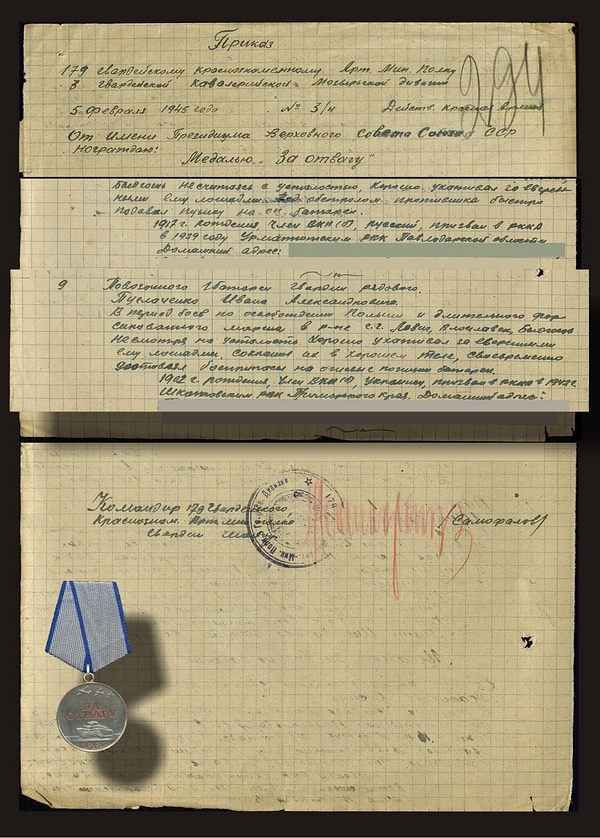 Приказ
179 Гвардейскому Краснознаменному Арт. Мин. Полку
3 Гвардейской Кавалерийской Мозырьской дивизии
294
5 февраля 1945 года № 3/н Действ. Красная Армия
От имени Президиума Верховного Совета Союза ССР
награждаю:
Медалью „За отвагу"
не считаясь с усталостью, хорошо ухаживал за вверен-
ными ему лошадьми. Под обстрелом противника быстро
подавал пушку на оп. батареи.
1917 г. рождения, член ВКП(б), русский, призван в РККА
в 1939 году РВК Павлодарской области
Домашний адрес:
9 Повозочного батареи гвардии рядового.
Ивана Александровича.
В период боев по освобождению Польши и длительного фор-
сированного марша в р-не г.г.
несмотря на усталость хорошо ухаживал за вверенными
ему лошадьми, сохранил их в хорошем теле, своевременно
доставлял боеприпасы на огневые позиции батареи.
1902 г. рождения, член ВКП(б), украинец, призван в РККА в
Шкотовским РВК Приморского края, Домашний адрес:
Командир 179 Гвардейского
Краснознам. Арт. мин. полка
гвардии
/Самофалов/
ЗА
ОТВАГУ
СССР